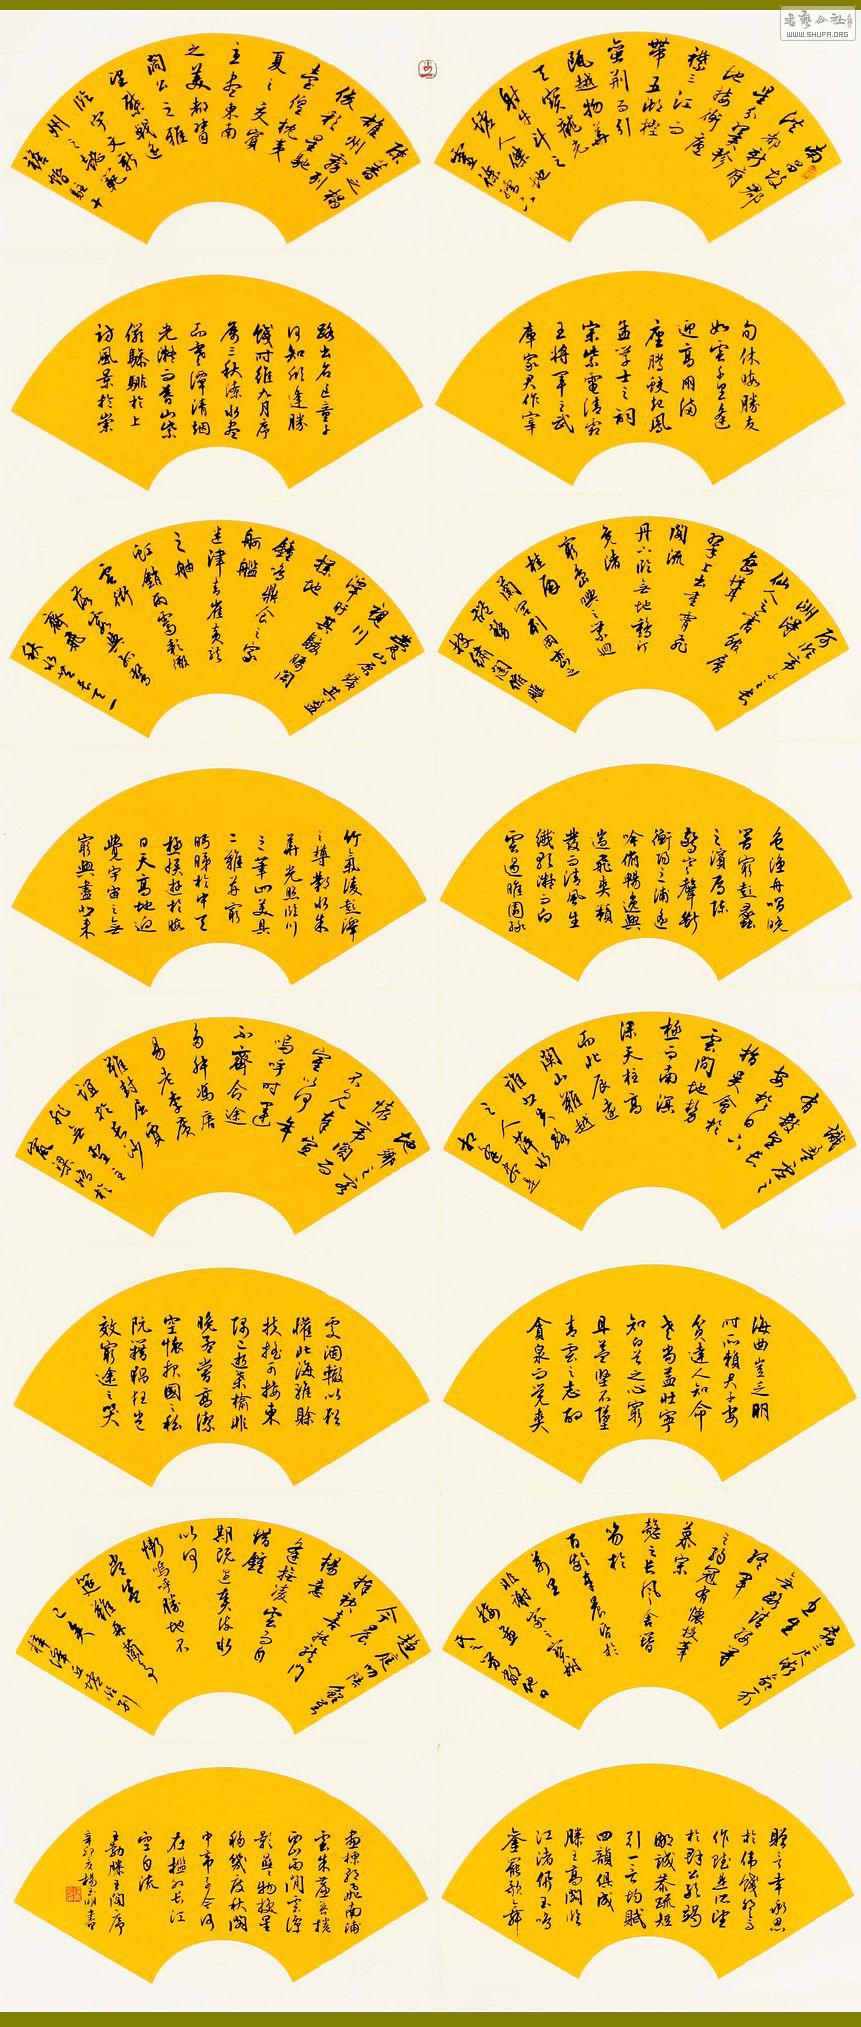 南昌故郡
洪都新府
星分翼軫
地接衡廬
襟三江而
帶五湖控
蠻荊而引
甌越物華
天寶龍光
射牛斗之
墟人傑地
靈徐孺下
陳蕃之榻
雄州霧列
俊彩星馳
臺隍枕夷
夏之交賓
主盡東南
之美都督
閻公之雅
望棨戟遙
臨宇文新
州之懿範
襜帷暫駐十
旬休暇勝友
如雲千里逢
迎高朋滿
座騰蛟起鳳
孟學士之詞
宗紫電清霜
王將軍之武
庫家君作宰
路出名區童子
何知躬逢勝
餞時維九月序
屬三秋潦水盡
而寒潭清烟
光凝而暮山紫
儼驂騑於上
訪風景於崇
阿臨帝子之長
洲得
仙人之舊館層
巒聳
翠上出重霄飛
閣流
丹下臨無地鶴汀
鳧渚
窮島嶼之縈迴
桂殿
蘭宮列岡巒之
體勢
披繡闥俯雕
甍山原曠其盈
視川
澤盱其駭矚閭
撲地
鐘鳴鼎食之家
舸艦
迷津青雀黃龍
之舳
虹銷雨霽彩徹
雲衢
落霞與孤鶩
齊飛
秋水共長天一
色漁舟唱晚
響窮彭蠡
之濱雁陣
驚寒聲斷
衡陽之浦遙
吟俯暢逸興
遄飛爽籟
發而清風生
纖歌凝而白
雲遏睢園綠
竹氣凌彭澤
之樽鄴水朱
華光照臨川
之筆四美具
二難并窮
睇眄於中天
極娛遊於暇
日天高地迥
覺宇宙之無
窮興盡悲來
識盈虛之
有數望長
安於日下
指吳會於
雲間地勢
極而南溟
深天柱高
而北辰遠
關山難越
誰悲失路
之人萍水
相逢盡是
他鄉之客
懷帝閽而
不見奉宣
室以何年
嗚呼時運
不齊命途
多舛馮唐
易老李廣
難封屈賈
誼於長沙
非無聖主
竄梁鴻於
海曲豈乏明
時所賴君子安
貧達人知命
老當益壯寧
知白首之心窮
且益堅不墜
青雲之志酌
貪泉而覺爽
處涸轍以猶
懽北海雖賒
扶搖可接東
隅已逝桑榆非
晚孟嘗高潔
空懷報國之私
阮籍猖狂豈
效窮途之哭
勃三尺微命一介
書生
無路請纓等
終軍
之弱冠有懷投筆
慕宗
愨之長風舍簪
笏於
百齡奉晨昏於
萬里
非謝家之寶樹
接孟
氏之芳鄰他日
趨庭叨陪鯉對
今晨
捧袂喜托龍門
楊意
不逢撫凌雲而自
惜鍾
期既遇奏流水
以何
慚嗚呼勝地不
常盛
筵難再蘭亭
已矣
梓澤丘墟臨別
贈言幸承恩
於偉餞登高
作賦是所望
於群公敢竭
鄙誠恭疏短
引一言均賦
四韻俱成
滕王高閣臨
江渚佩玉鳴
鸞罷歌舞
畫棟朝飛南浦
雲朱簾暮捲
西山雨閒雲潭
影悠悠物換星
移幾度秋閣
中帝子今何
在檻外長江
空自流
王勃滕王閣序
辛卯夏楊玉明書
WWW.SHUFA.ORG